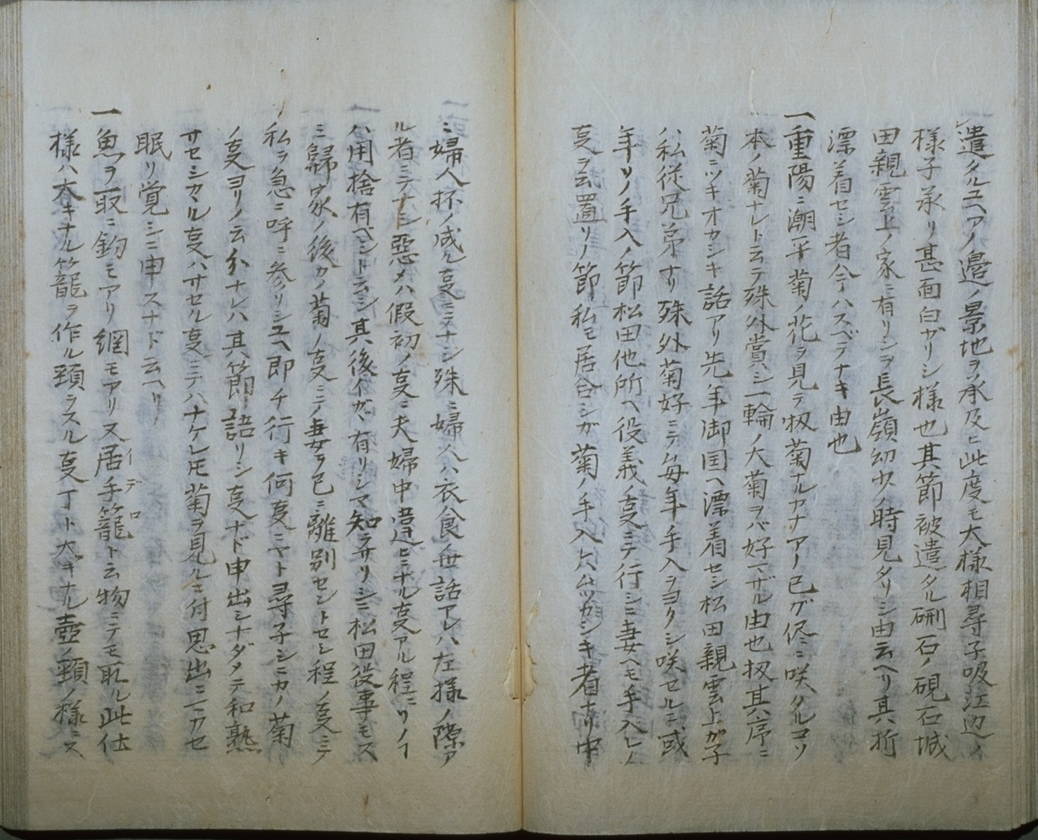 遣タルユヘアノ邊ノ景地ヲ承及ヒ此度モ大様相尋子吸江辺ノ
様子承リ甚面白ガリシ様也其節被遣タル硎石ノ硯石城
田親雲上ノ家ニ有リシヲ長嶺幼少ノ時見タリシ由云ヘリ其折
漂着セシ者今ハスベテナキ由也
一重陽ニ潮平菊花ヲ見テ扨菊ナルカナアノ己ガ侭ニ咲タルコソ
本ノ菊ナレト云テ殊外賞シ一輪ノ大菊ヲバ好マザル由也扨其序ニ
菊ニツキオカシキ話アリ先年御国ヘ漂着セシ松田親雲上ガ子
ハ私従兄弟ナリ殊外菊好ニテ毎年手入ヲヨクシ咲セルニ或
年ソノ手入ノ節松田他所ヘ役義ノ㕝ニテ行シニ妻ヘモ手入レノ
㕝ヲ云置リソノ節私モ居合シガ菊ノ手入ハムツカシキ者ナリ中
ニ婦人杯ノ成ル㕝ニテナシ殊ニ婦人ハ衣食ノ世話アレハ左様ノ隙ア
ル者ニテナシ惡クメハ假初ノ㕝ニ夫婦中違ヒニナル㕝アル程ニソノイ
ハ用捨有ヘシト云シ其後イカヾ有リシヤ知ラサリシニ松田役事モス
ミ歸家ノ後カノ菊ノ㕝ニテ妻ヲ已ニ離別セントセシ程ノ㕝ニテ
私ヲ急ニ呼ニ参リシユヘ即チ行キ何㕝ニヤト尋子シニカノ菊
ノ㕝ヨリノ云分ナレハ其節語リシ㕝ナド申出シナダメテ和熟
サセシカヽル㕝ハサセル㕝ニテハナケレ𪜈菊ヲ見ルニ付思出ニマカセ
眠リ覚シニ申スナド云ヘリ
一魚ヲ取ニ釣モアリ網モアリ又居手籠イデロト云物ニテモ取ル此仕
様ハ大キナル籠ヲ作ル頚ヲスル㕝丁ト大キナル壺ノ頸ノ様ニス